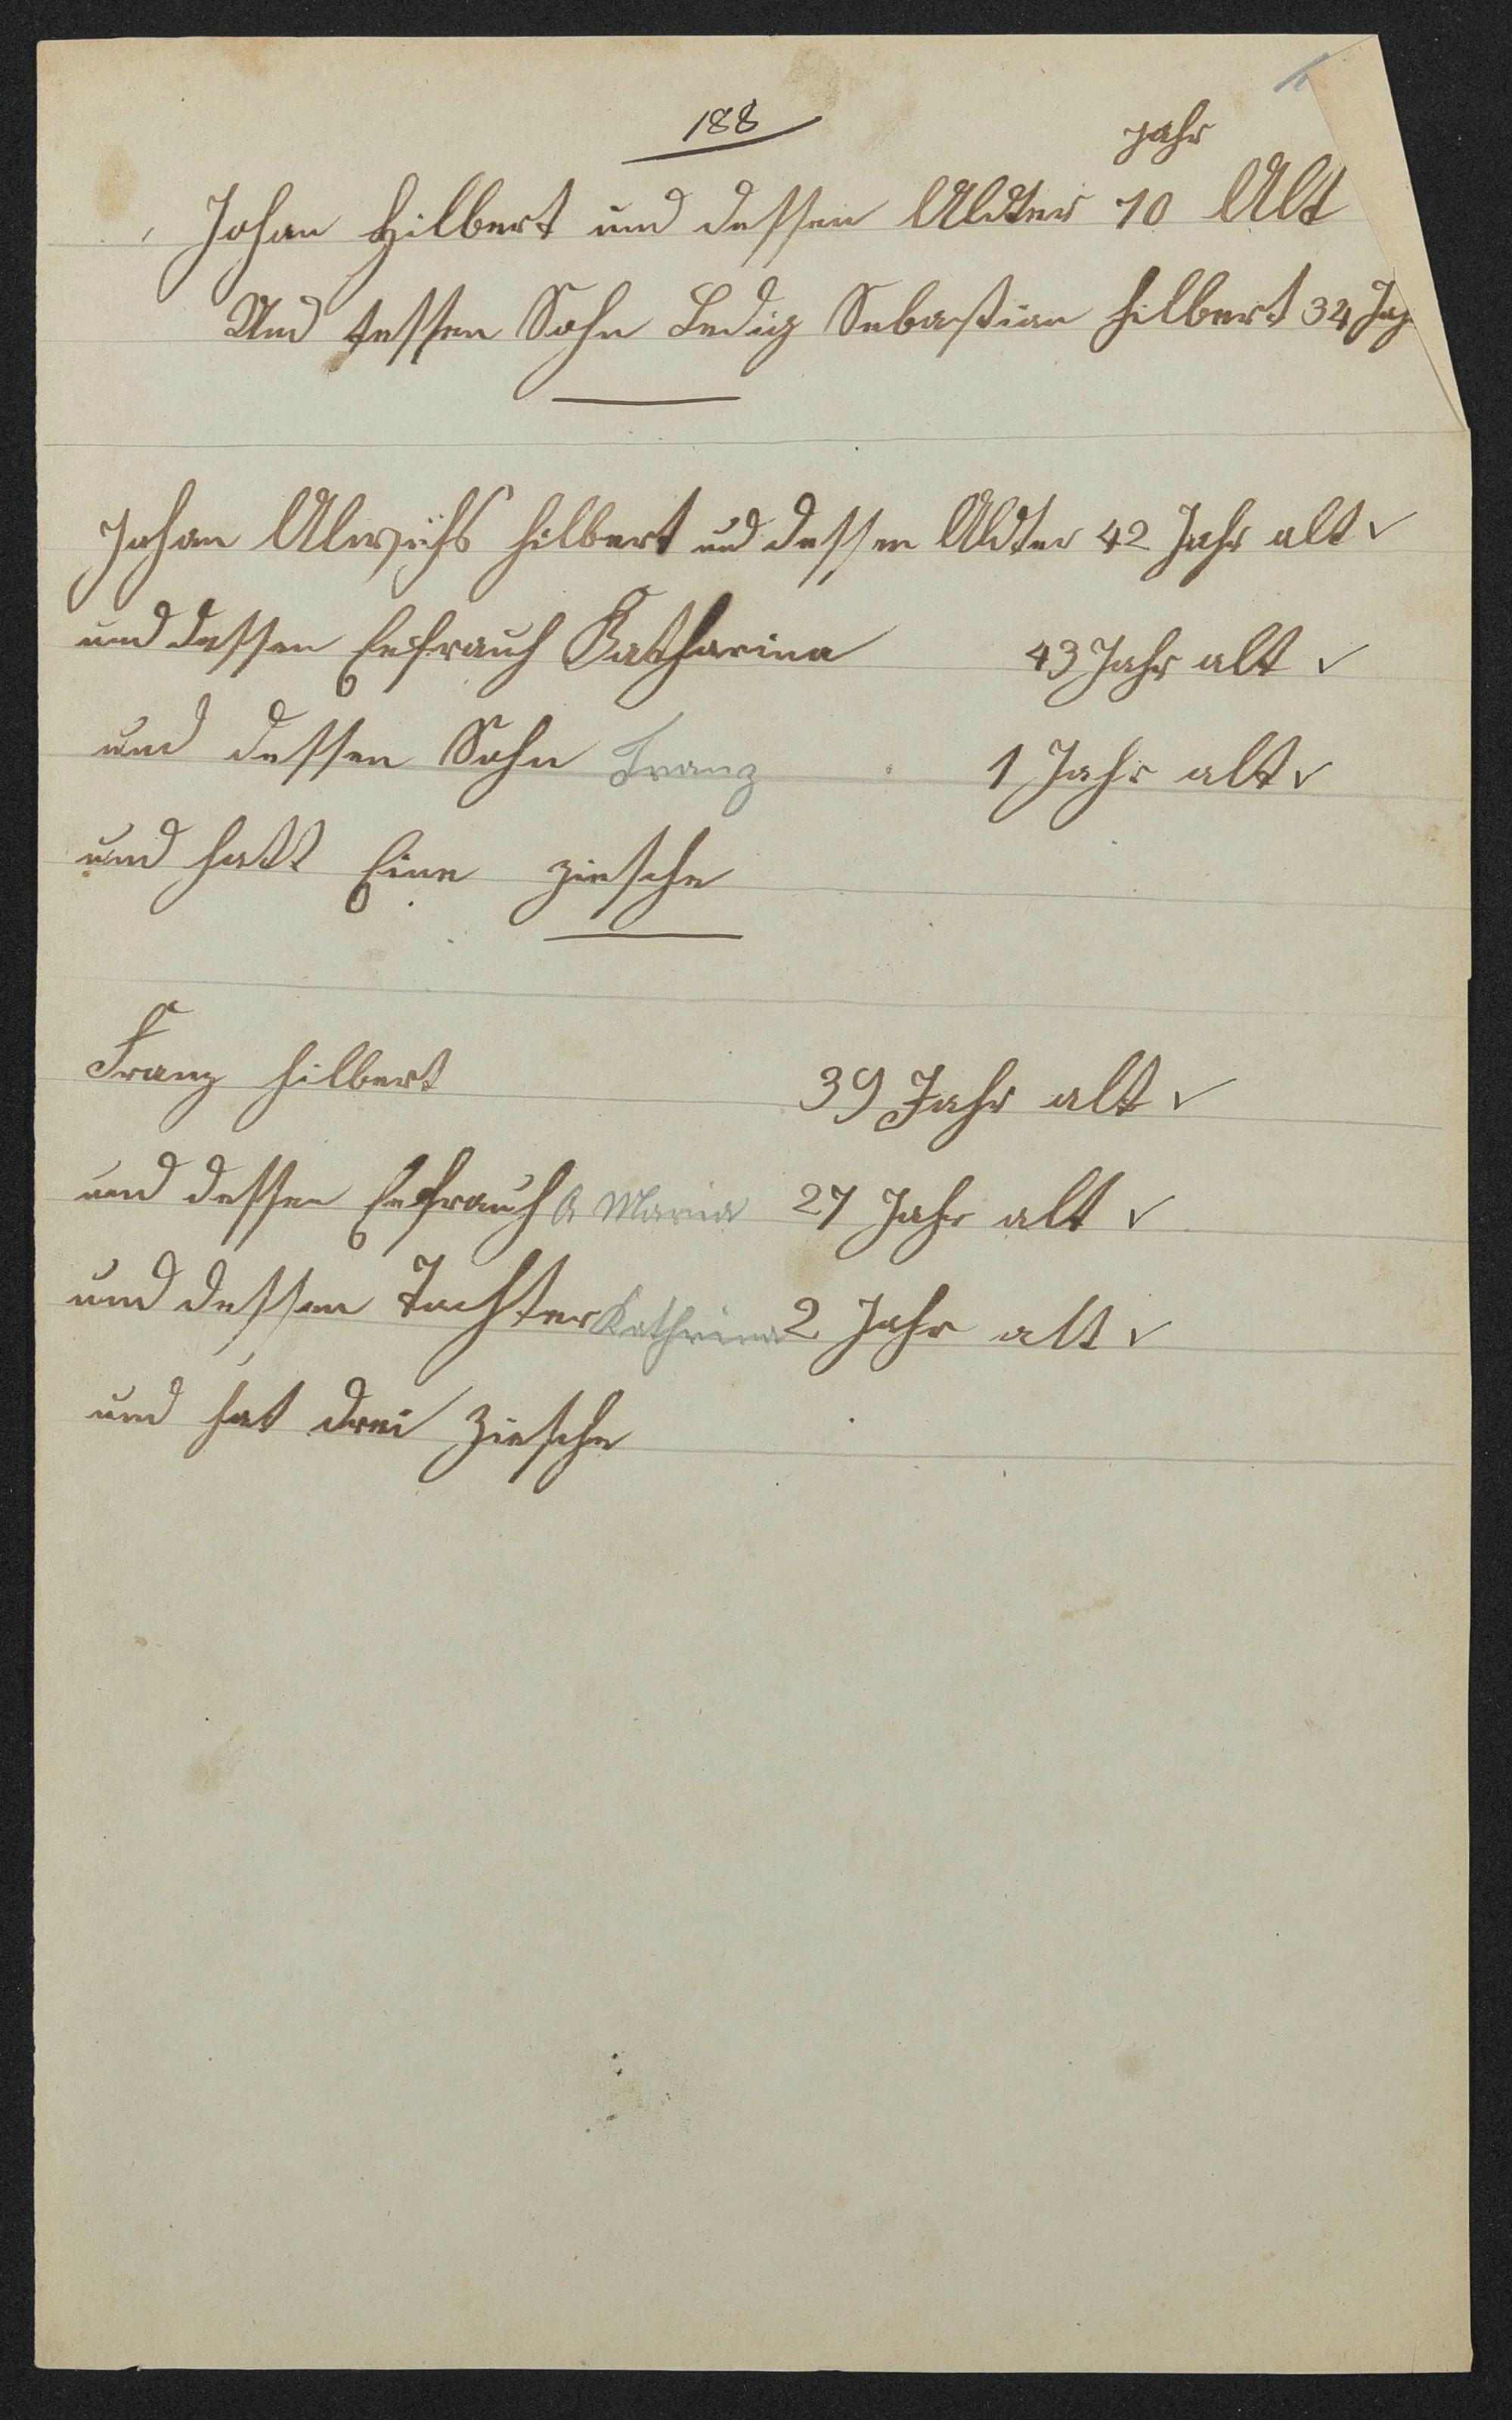 188
Jahr
Johan Hilbert und dessen Aldter 70 Alt
Und dessen Sohn Ledig Sebastian Hilbert 34 Jah
Johan Hilbert und dessen Aldter 42 Jahr alt
und dessen Eefrauh Katharina 43 Jahr alt
und dessen Sohn Franz 1 Jahr alt
und hatt Eine ziesche
Franz Hilbert 39 Jahr alt
und dessen Eefrauh A Maria 27 Jahr alt
und dessen Tochter Kathrina 2 Jahr alt
und hat drei Ziesche